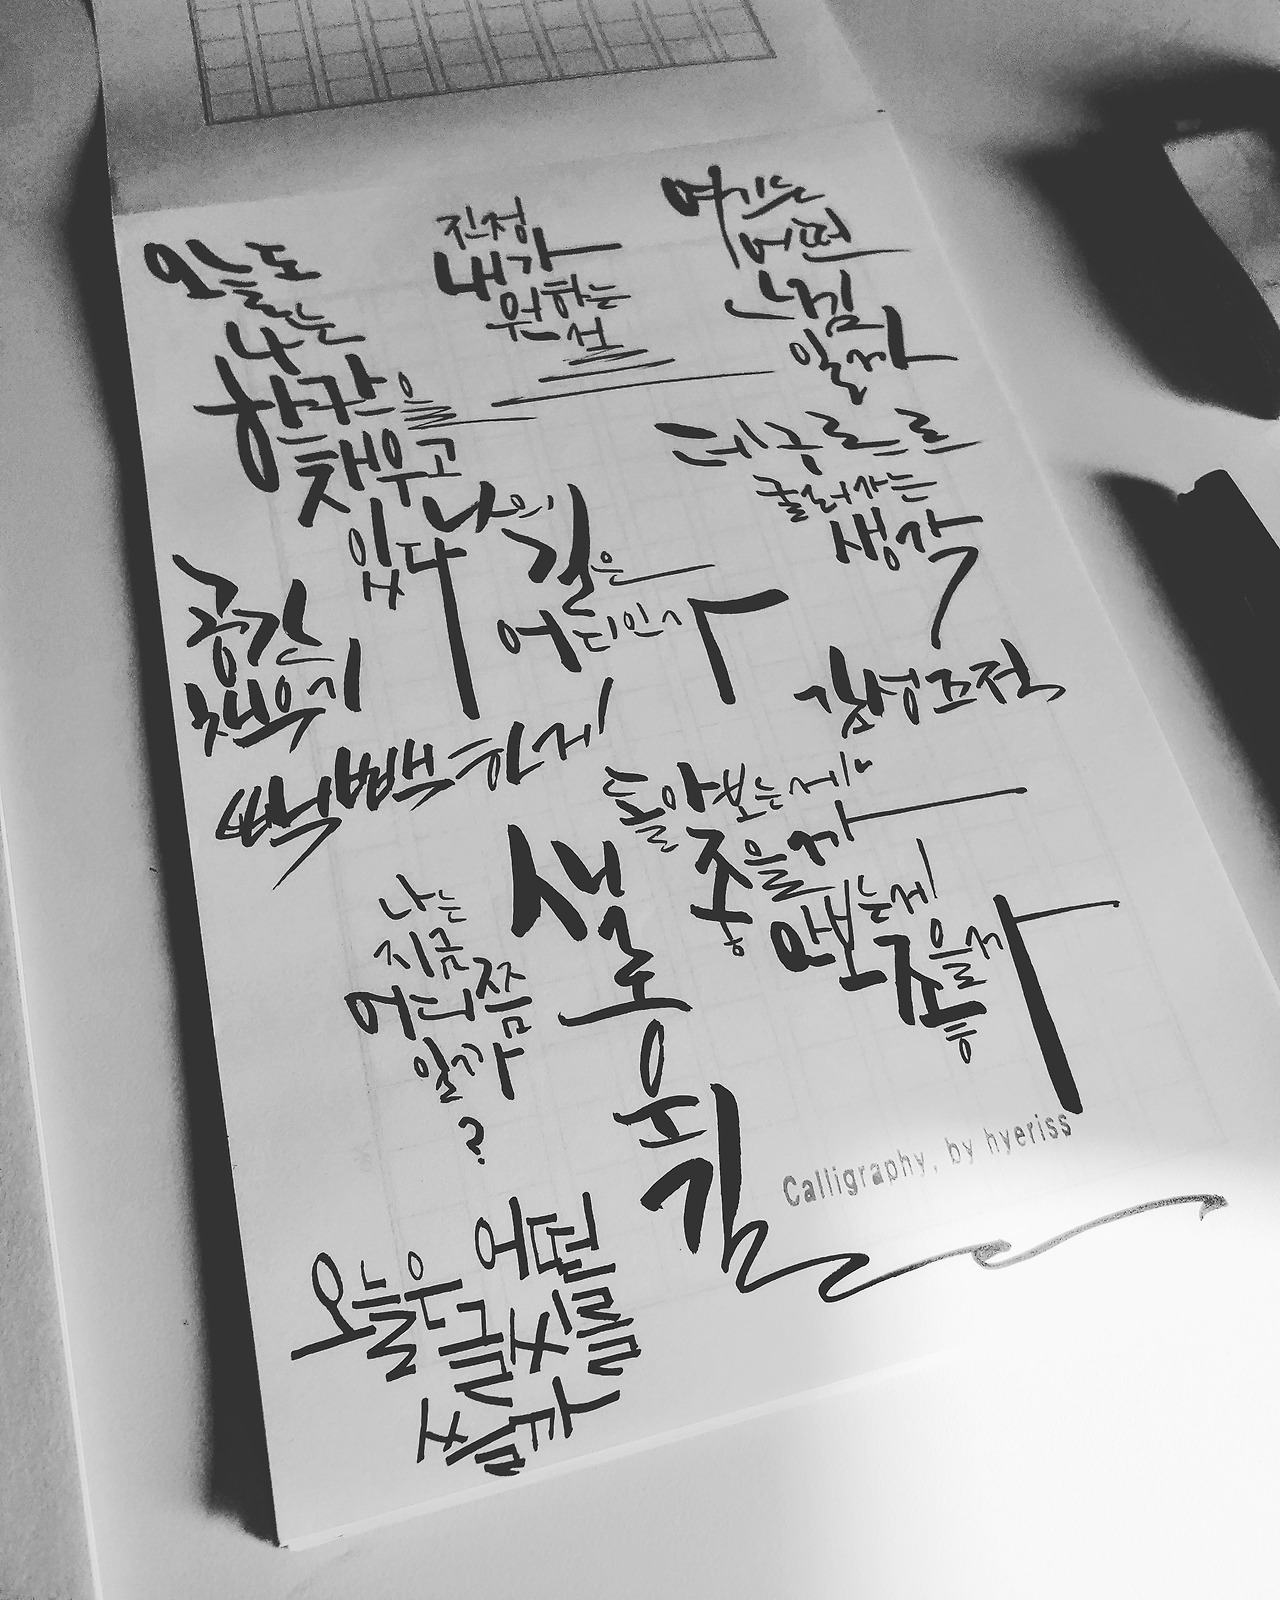 오늘도
나는
한칸을
채우고
있다
진정
내가
원하는
선
여기는
어떤
느낌
일까
데굴르르르
굴러가는
생각
나의
길은
어디인가
공간
채우기
빽빽하게
감성조절
돌아보는게
좋을까
안보는게
좋을까
나는
지금
어디쯤
일까
?
새로운
길
오늘은
Calligraphy. by hyeriss